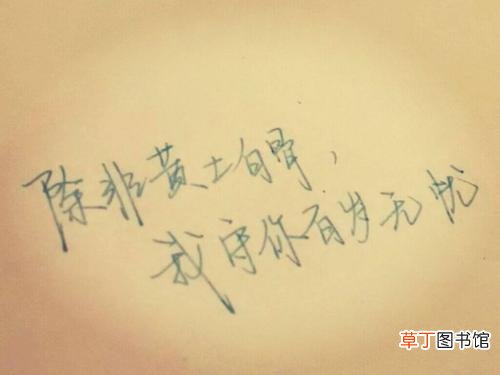 除非黄土白骨，
我守你百岁无忧
草丁图书馆